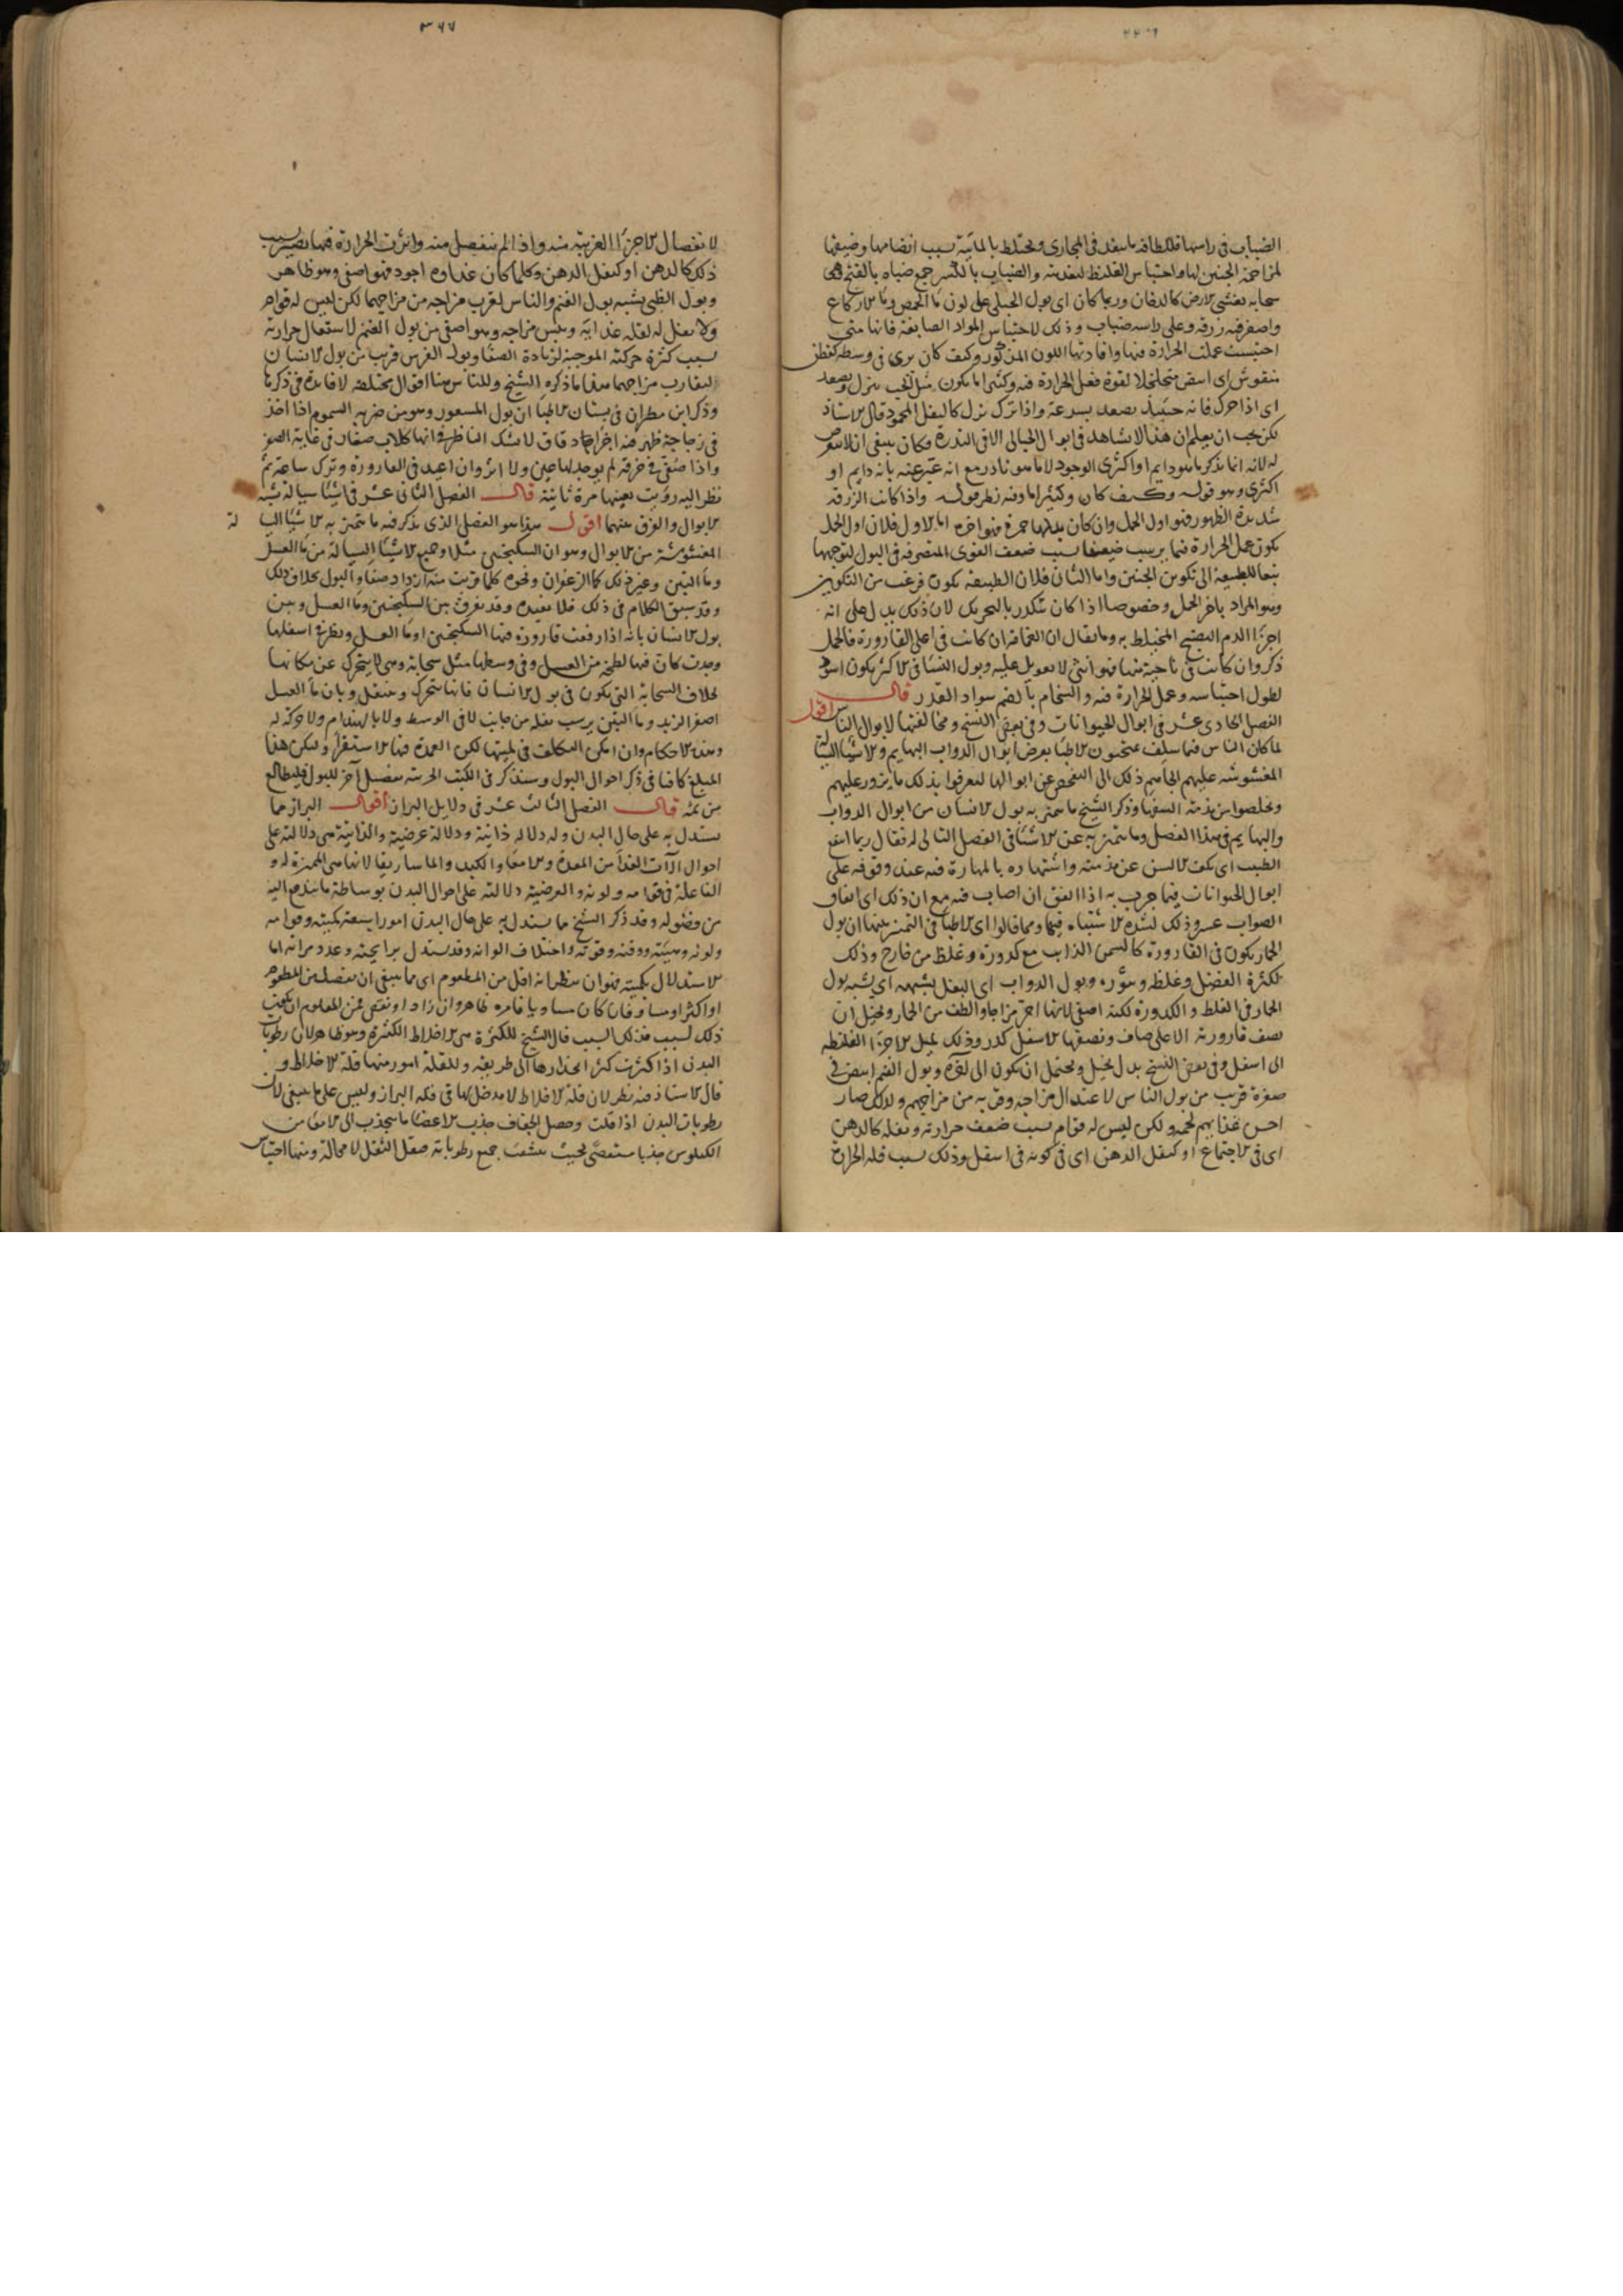 الضباب فى راسها فللطافة ما ينفذ فى المجارى ويختلط بالمائية بسبب انضمامها وضيقها
لمزاحمة الجنين لها واحتباس الغليظ لتغذيته والضباب بالكسر جمع ضبابه بالفتح وهى
سحابه تغشى الارض كالدخان وربما كان اى بول الحبلى على لون ماء الحمص وماء الاكارع
واصفر فيه زرقه وعلى راسه ضباب وذلك لاحتباس المواد الصابغة فانها متى
احتبست عملت الحرارة فيها وافادتها اللون المذكور وكيف كان يرى فى وسطه كقطن
منفوش اى ابيض متخلخلا لقوة فعل الحرارة فيه وكثيرا ما يكون مثل الحب ينزل ويصعد
اى اذا حرك فانه حينئذ يصعد بسرعة واذا ترك نزل كالثفل المحمود قال الاستاذ
لكن يجب ان يعلم ان هذا لا يشاهد فى ابوال الحبالى الا فى الندرة وكان ينبغى ان لا يتعرض
له لانه انما يذكر ما هو دايم او اكثرى الوجود لا ما هو نادر مع انه عبر عنه بانه دايم او
اكثرى وهو قوله وكيف كان وكثيرا ما وفيه نظر قوله واذا كانت الزرقه
شديدة الظهور فهو اول الحمل وان كان بدلها حمرة فهو اخره اما الاول فلان اول الحمل
يكون عمل الحرارة فيما يرسب ضعيفا بسبب ضعف القوى المتصرفه فى البول لتوجهها
تبعا للطبيعة الى تكوين الجنين واما الثانى فلان الطبيعة يكون فرغت من التكوين
وهو المراد باخر الحمل وخصوصا اذا كان تكدر بالتحريك لان ذلك يدل على انه
اجزاء الدم النضيج المختلط به وما يقال ان الغمامة ان كانت فى اعلى القارورة فالحمل
ذكر وان كانت فى ناحية منها فهو انثى لا تعويل عليه وبول النساء فى الاكثر يكون اسود
لطول احتباسه وعمل الحرارة فيه والسخام بالضم سواد القدر قال
الفصل الحادى عشر فى ابوال الحيوانات وفى بعض النسخ ومخالفتها لابوال الناس اقول
لما كان الناس فيما سلف يمتحنون الاطباء بعرض ابوال الدواب البهايم والاشياء السيالة
المغشوشه عليهم الجاهم ذلك الى التفحص عن ابوالها ليعرفوا بذلك ما يزور عليهم
ويخلصوا من مذمة السفهاء وذكر الشيخ ما يتميز به بول الانسان من ابوال الدواب
والبهايم فى هذا الفصل وما يتميز به عن الاشياء فى الفصل التالى له فقال ربما انتفع
الطبيب اى بكف الالسن عن مذمته واشتهاره بالمهارة فيه عند وقوفه على
ابوال الحيوانات فيما جرب به اذا اتفق ان اصاب فيه مع ان ذلك اى اتفاق
الصواب عسر وذلك لشدة الاشتباه فيها ومما قالوا اى الاطباء فى التمييز بينها ان بول
الحمار يكون فى القارورة كالسمن الذايب مع كدورة وغلظ من خارج وذلك
لكثرة الفضل وغلظه وثوره وبول الدواب اى البغل يشبهه اى يشبه بول
الحمار فى الغلظ والكدورة لكنه اصفى لانها احر مزاجا والطف من الحمار ويخيل ان
نصف قارورته الاعلى صاف ونصفها الاسفل كدر وذلك لميل الاجزاء الغليظه
الى اسفل وفى بعض النسخ بدل يخيل ويحتمل ان يكون الى اخره وبول الغنم ابيض فى
صفرة قريب من بول الناس لاعتدال مزاجه وقربه من مزاجهم ولذلك صار
احسن غذائهم لحمه ولكن ليس له قوام بسبب ضعف حرارته وثفله كالدهن
اى فى الاجتماع او كثفل الدهن اى فى كونه فى اسفل وذلك بسبب قلة الحرارة
٣٦٧
لانفصال الاجزاء الغريبة منه واذا لم تنفصل منه واثرت الحرارة فيها يصير بسبب
ذلك كالدهن او كثفل الدهن وكلما كان غذاوه اجود فهو اصفى وهو ظاهر
وبول الظبى يشبه بول الغنم والناس لقرب مزاجه من مزاجهما لكن ليس له قوام
ولا ثفل له لقله غذائه ويبس مزاجه وهو اصفى من بول الغنم لاشتعال حرارته
بسبب كثرة حركته الموجبة لزيادة الصفاء وبول الفرس قريب من بول الانسان
لتقارب مزاجهما هذا ما ذكره الشيخ وللناس هنا اقوال مختلفه لا فايدة فى ذكرها
وذكر ابن مطران فى بستان الاطباء ان بول المسعور وهو من ضربه السموم اذا اخذ
فى زجاجة ظهر فيه اجزاء دقاق لا يشك الناظر فى انها كلاب صغار فى غاية الصغر
واذا صفى فى خرقة لم يوجد لها عين ولا اثر وان اعيد فى القارورة وترك ساعة ثم
نظر اليه رؤيت بعينها مرة ثانية قال الفصل الثانى عشر فى اشياء سيالة تشبه
الابوال والفرق بينهما اقول هذا هو الفصل الذى يذكر فيه ما يتميز به الاشياء السيالة
المغشوشة من الابوال وهو ان السكنجبين مثلا وجميع الاشياء السيالة من ماء العسل
وماء التين وغير ذلك كماء الزعفران ونحوه كلما قربت منه ازداد صفاء والبول بخلاف ذلك
وقد سبق الكلام فى ذلك فلا نعيده وقد يفرق بين السكنجبين وماء العسل وبين
بول الانسان بانه اذا رفعت قارورة فيها السكنجبين او ماء العسل ونظر فى اسفلها
وجدت كان فيها لطخه من العسل وفى وسطها مثل سحابة وهى لا يتحرك عن مكانها
بخلاف السحابة التى يكون فى بول الانسان فانها يتحرك وينتقل وبان ماء العسل
اصفر الزبد وماء التين يرسب ثفله من جانب لا فى الوسط ولا بالهندام ولا حركة له
وهذه الاحكام وان امكن التكلف فى لميتها لكن العمدة فيها الاستقراء وليكن هذا
المبلغ كافيا فى ذكر احوال البول وسنذكر فى الكتب الجزئية تفصيل آخر للبول فليطالع
من ثمه قال الفصل الثالث عشر فى دلايل البراز اقول البراز مما
يستدل به على حال البدن وله دلاله ذاتية ودلالة عرضية والذاتية هى دلالته على
احوال آلات الغذاء من المعدة والامعاء والكبد والماساريقا لانها هى المميزة له و
الفاعلة فى قوامه ولونه والعرضية دلالته على احوال البدن بوساطة ما يندفع اليه
من فضوله وقد ذكر الشيخ مما يستدل به على حال البدن امورا سبعة كميته وقوامه
ولونه وهيئته ووقته وقوته واختلاف الوانه وقد يستدل برايحته وعدد مراته اما
الاستدلال بكميته فهو ان ينظر انه اقل من المطعوم اى مما ينبغى ان ينفصل من المطعوم
او اكثر او مساو فان كان مساويا فامره ظاهر وان زاد او نقص فمن المعلوم ان يكون
ذلك لسبب فذلك السبب قال الشيخ للكثرة هى الاخلاط الكثيرة وهو ظاهر لان رطوبات
البدن اذا كثرت كثر انحدارها الى طريقه وللقلة امور منها قلة الاخلاط و
قال الاستاذ فيه نظر لان قلة الاخلاط لا مدخل لها فى قلة البراز وليس على ما ينبغى لان
رطوبات البدن اذا قلت وحصل الجفاف جذب الاعضاء ما ينجذب الى الامعاء من
الكيلوس جذبا مستقصى بحيث ينشف جميع رطوباته فيقل الثفل لا محالة ومنها احتباس